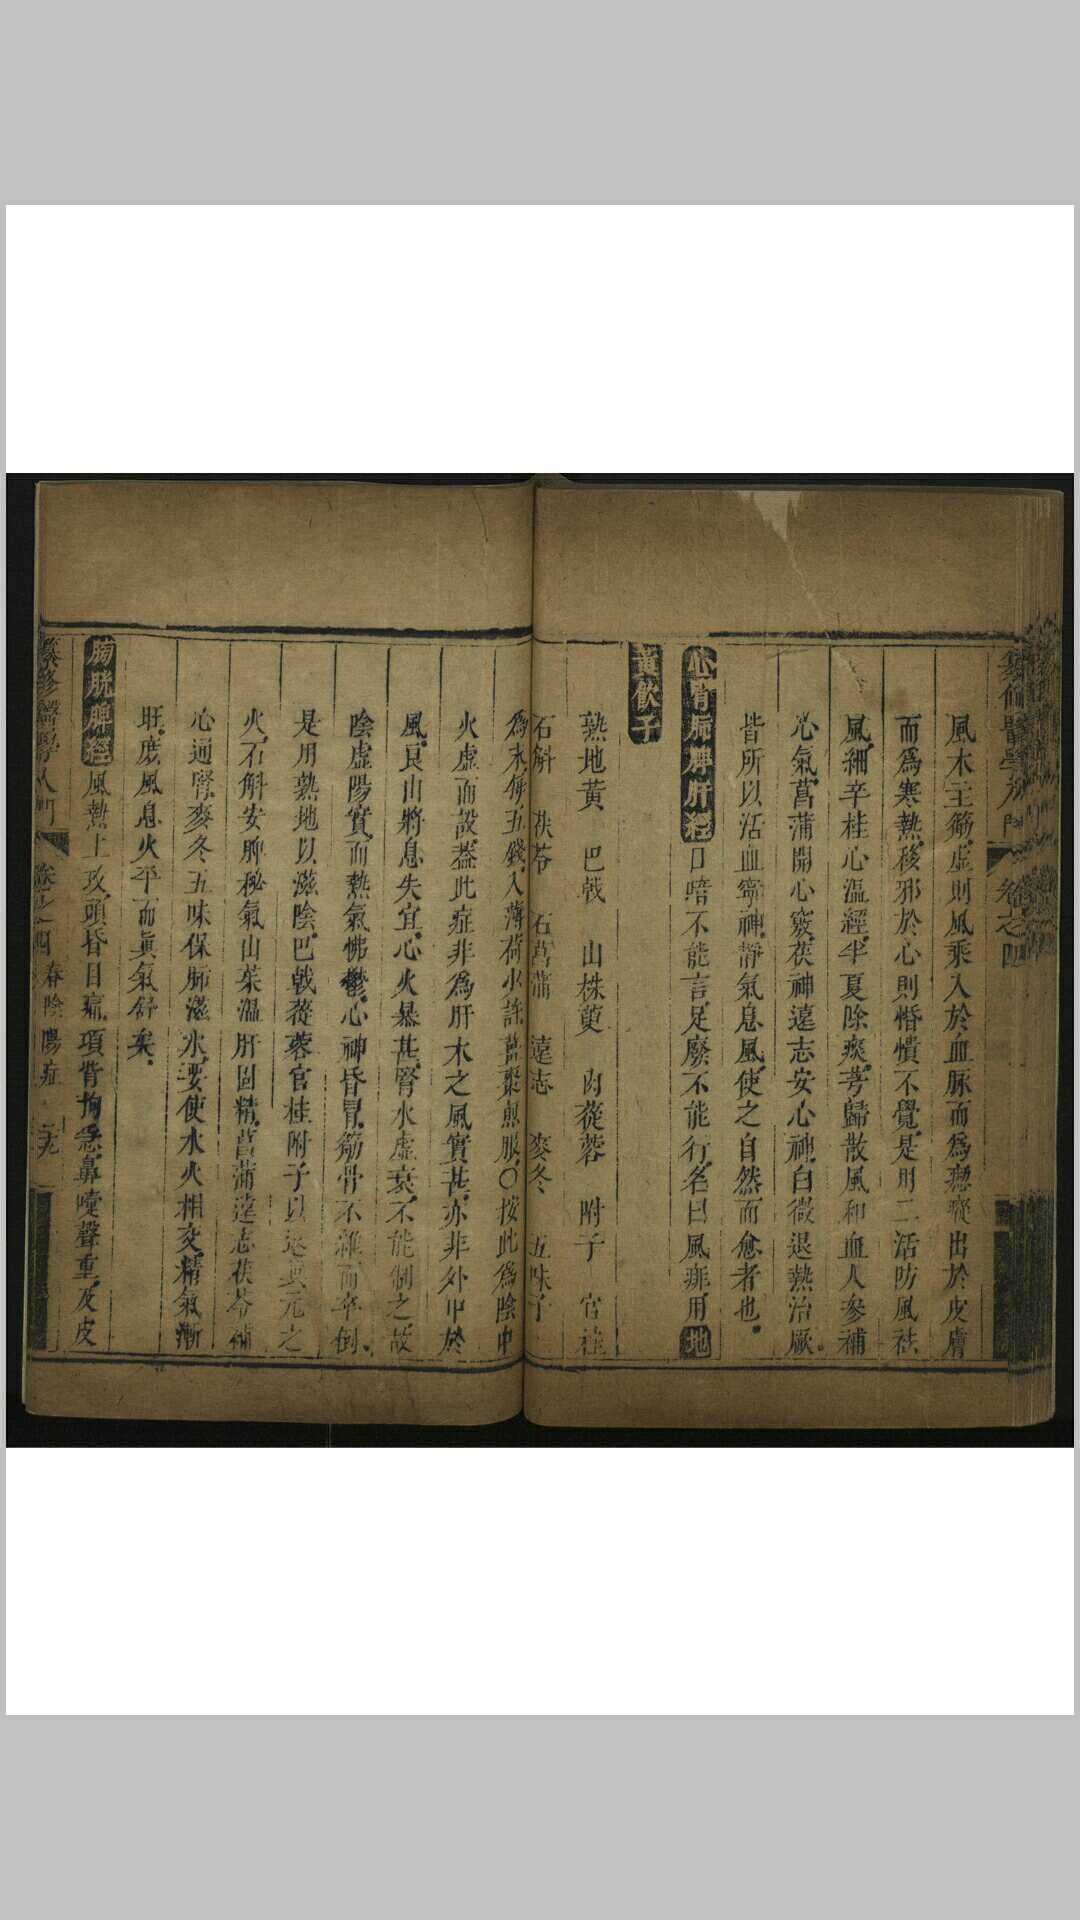 卷之四
風木主筋虛則風乘入於血脉而為瘛瘲出於皮膚
而為寒熱移邪於心則惛憒不覺是用二活防風袪
風細辛桂心溫經半夏除痰芎歸散風和血人參補
心氣菖蒲開心竅茯神遠志安心神白薇退熱治厥
皆所以活血寧神靜氣息風使之自然而愈者也
心腎肺脾肝經口喑不能言足廢不能行名曰風痱用地
黃飲子
熟地黃 巴戟 山株萸 肉蓯蓉 附子 官桂
石斛 茯苓 石菖蒲 遠志 麥冬 五味子
為末每五錢入薄荷水許薑棗煎服〇按此為陰中
火虛而設蓋此症非為肝木之風實甚亦非外中於
風良由將息失宜心火暴甚腎水虛衰不能制之故
陰虛陽實而熱氣怫鬱心神昏冒筋骨不 而卒倒
是用熟地以滋陰巴戟蓯蓉官桂附子以返真元之
火石斛安脾秘氣山茱溫肝固精菖蒲遠志茯苓補
心通腎麥冬五味保肺滋水要使水火相交精氣漸
旺庶風息火平而眞氣舒矣
膀胱膽經風熱上攻頭昏目痛項背拘急鼻嚏聲重及皮
纂修醫學入門 卷之四 春陰陽症 二九